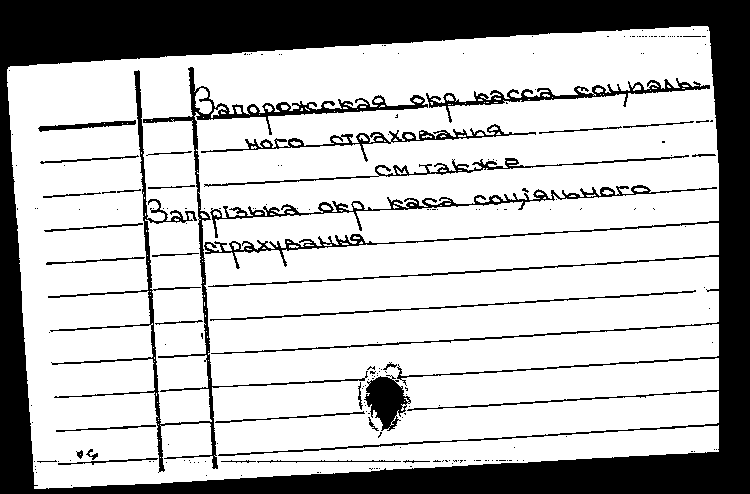 Запорожская окр. касса социаль-
ного страхования.
см. также
Запорізька окр. каса соціяльного
страхування.